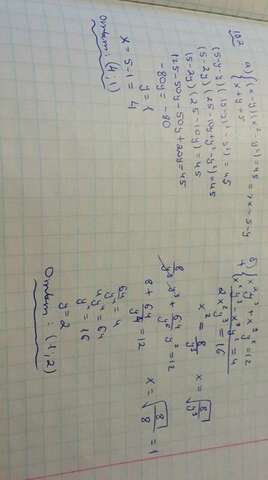 182
а) { (x-y)(x²-y²)=45
x+y=5 => x=5-y
(5-y-y)((5-y)²-y²)=45
(5-2y)(25-10y+y²-y²)=45
(5-2y)(25-10y)=45
125-50y-50y+20y=45
-80y=-80
y=1
x=5-1=4
Ответ: (4;1)
б) { x³y³+x²y²=12
x³y³-x²y²=4
2x²y³=16
x²=8/y³ x=√8/y³
8+64/y⁴=12 x=√8/8=1
64/y⁴=4
4y⁴=64
y⁴=16
y=2
Ответ: (1;2)